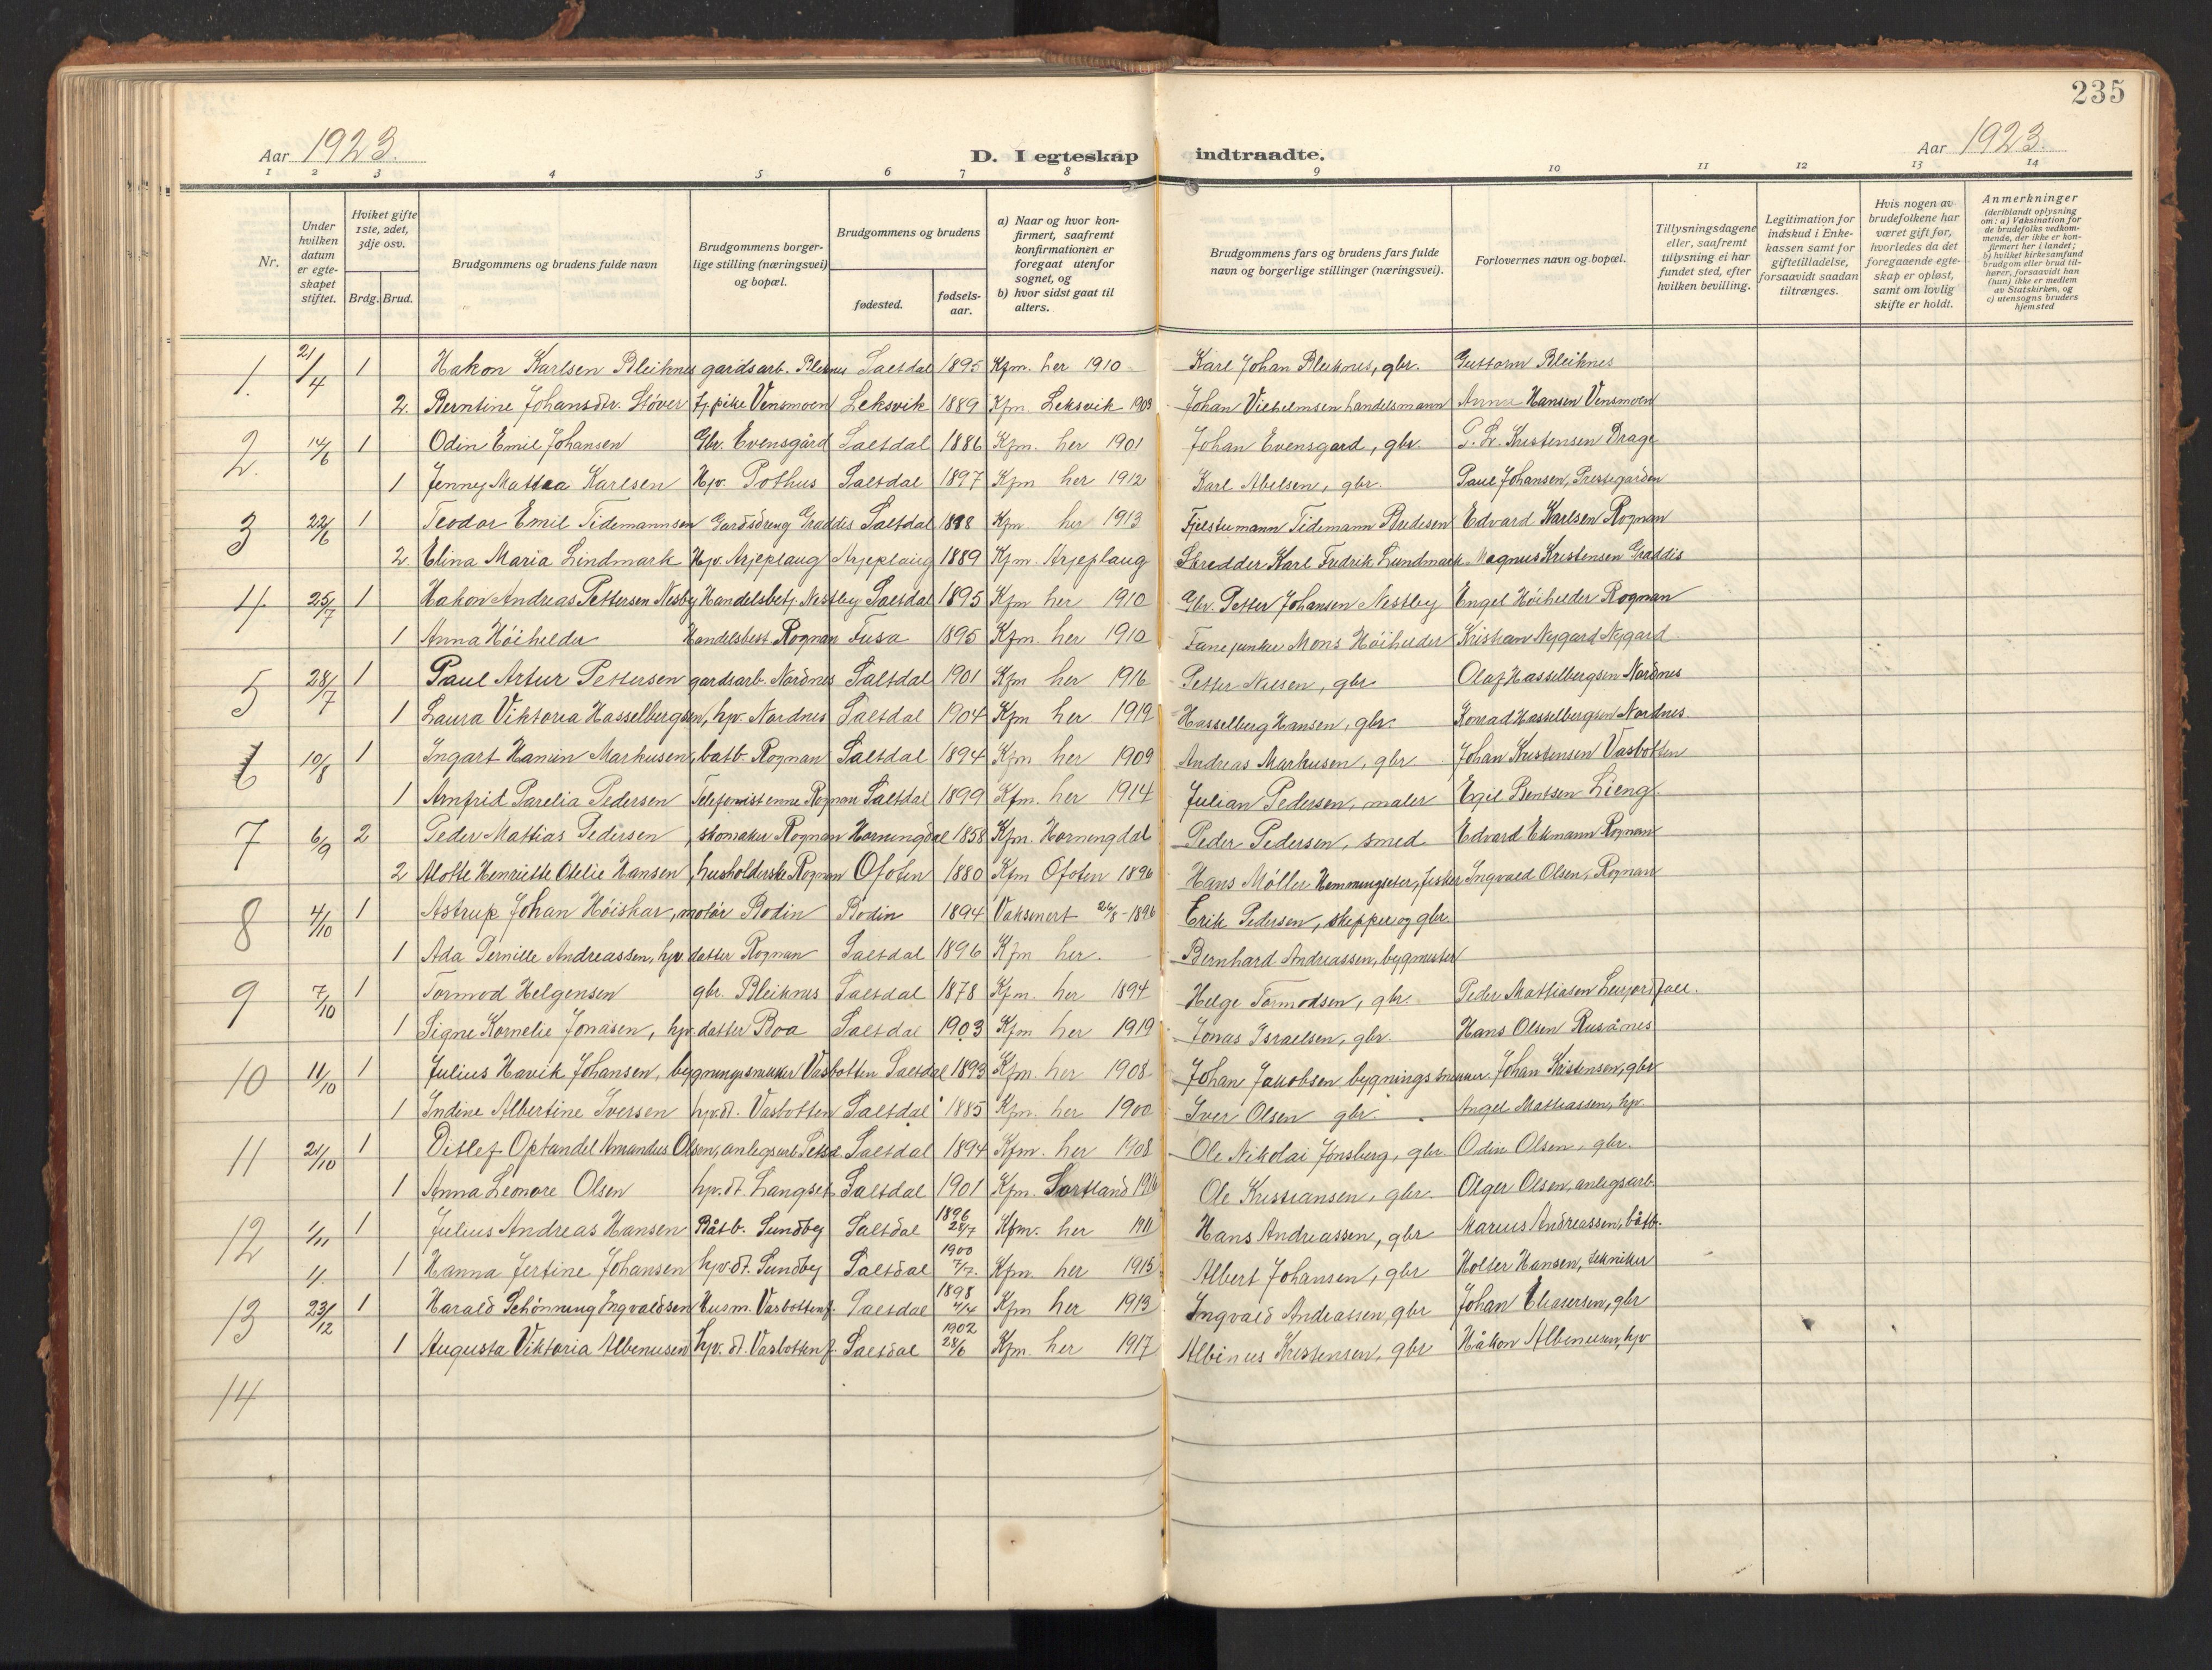 235
Aar 1923.
D. I egteskap indtraadte.
Aar 1923.
1 2 3 4 5 6 7 8 9 10 11 12 13 14
Nr.
Under hvilken datum er egteskapet stiftet.
Hviket gifte 1ste, 2det, 3dje osv.
Brdg. Brud.
Brudgommens og brudens fulde navn
Brudgommens borgerlige stilling (næringsvei) og bopæl.
Brudgommens og brudens
fødested.
fødselsaar.
a) Naar og hvor konfirmert, saafremt konfirmationen er foregaat utenfor sognet, og
b) hvor sidst gaat til alters.
Brudgommens fars og brudens fars fulde navn og borgerlige stillinger (næringsvei).
Forlovernes navn og bopæl.
Tillysningsdagene eller, saafremt tillysning ei har fundet sted, efter hvilken bevilling.
Legitimation for indskud i Enkekassen samt for giftetilladelse, forsaavidt saadan tiltrænges.
Hvis nogen av brudefolkene har været gift før, hvorledes da det foregaaende egteskap er opløst, samt om lovlig skifte er holdt.
Anmerkninger
(deriblandt oplysning om: a) Vaksination for de brudefolks vedkommende, der ikke er konfirmert her i landet; b) hvilket kirkesamfund brudgom eller brud tilhører, forsaavidt han (hun) ikke er medlem av Statskirken, og c) utensogns bruders hjemsted
1. 21/4 1 Hakon Karlsen Bleiknes gardsarb. Bleiknes Saltdal 1895 Kfm. her 1910 Karl Johan Bleiknes, gbr. Guttorm Bleiknes
2. Berntine Johansdtr. Støver tj.pike Vensmoen Leksvik 1889 Kfm. Leksvik 1903 Johan Vilhelmsen handelsmann Anna Hansen Vensmoen
2. 14/6 1 Odin Emil Johansen Gbr. Evensgård Saltdal 1886 Kfm. her 1901 Johan Evensgard, gbr. P. Kristensen Drage
1 Jenny Mattea Karlsen Hjv. Pothus Saltdal 1897 Kfm her 1912 Karl Abelsen, gbr. Paul Johansen, Prestegården
3 22/6 1 Teodor Emil Tidemannsen Gardsdreng Graddis Saltdal 1898 Kfm her 1913 Fjelstuemann Tidemann Bredesen Edvard Karlsen Rognan
2. Elina Maria Lindmark Hjv. Arjeplaug Arjeplaug 1889 Kfm. Arjeplaug Skredder Karl Fredrik Lundmark Magnus Kristensen Graddis
4. 25/7 1 Hakon Andreas Pettersen Nesby Handelsbetj. Nestby Saltdal 1895 Kfm her 1910 Gbr. Petter Johansen Nestby Engel Höihelder Rognan
1 Anna Höihelder Handelsbest Rognan Fusa 1895 Kfm. her 1910 Fanejunker Mons Höihelder Kristian Nygard Nygard
5 28/7 1 Paul Artur Pettersen gardsarb. Nordnes Saltdal 1901 Kfm her 1916 Petter Nilsen, gbr Olaf Hasselbergsen Nordnes
1 Laura Viktoria Hasselbergsen, hjv. Nordnes Saltdal 1904 Kfm her 1919 Hasselberg Hansen, gbr. Konrad Hasselbergsen Nordnes
6 10/8 1 Ingart Hanin Markusen, batb. Rognan Saltdal 1894 Kfm her 1909 Andreas Markusen, gbr Johan Kristensen Vasbotten
1 Arnfrid Parelia Pedersen Telefonistenne Rognan Saltdal 1899 Kfm. her 1914 Julian Pedersen, maler Egil Bentsen Lieng
7 6/9 2 Peder Mattias Pedersen, skomaker Rognan Horningdal 1858 Kfm. Horningdal Peder Pedersen, smed Edvard Ekmann Rognan
2 Alotte Henriette Otelie Hansen, husholderske Rognan Ofoten 1880 Kfm Ofoten 1896 Hans Møller Hemmingseter, fisker Ingvald Olsen, Rognan
8 4/10 1 Astrup Johan Höiskar, motör Bodin Bodin 1894 Vaksinert 26/8-1896 Erik Pedersen, skipper og gbr.
1 Ada Pernille Andreassen, hjv. datter Rognan Saltdal 1896 Kfm her. Bernhard Andreassen, bygmester
9 7/10 1 Tormod Helgensen gbr. Bleiknes Saltdal 1878 Kfm. her 1894 Helge Tormodsen, gbr. Peder Mattiasen Leifjordfall.
1 Signe Kornelie Jonasen, hjv. datter Boa Saltdal 1903 Kfm her 1919 Jonas Israelsen, gbr. Hans Olsen Rusånes
10 11/10 1 Julius Havik Johansen, bygningssnekker Vasbotten Saltdal 1893 Kfm. her 1908 Johan Jakobsen bygningssnekker Johan Kristensen, gbr
1 Indine Albertine Iversen hjv.dt. Vasbotten Saltdal 1885 Kfm. her 1900 Iver Olsen gbr. Angel Mattiassen, hjv.
11 21/10 1 Ditlef Optandel Amandus Olsen, anlegsarb. Saltdal 1894 Kfm. her 1908 Ole Nikolai Jönsberg, gbr. Odin Olsen, gbr.
1 Anna Leonore Olsen hjv.dt. Langset Saltdal 1901 Kfm. Sortland 1916 Ole Kristiansen, gbr. Olger Olsen, anlegsarb.
12 1/11 1 Julius Andreas Hansen Båtb. Sundby Saltdal 1896 28/7 Kfm. her 1911 Hans Andreassen, gbr Marius Andreassen, båtb.
1/. 1 Hanna Jertine Johansen hjv.dt. Sundby Saltdal 1900 7/7. Kfm. her 1915 Albert Johansen, gbr Holter Hansen, tekniker
13 23/12 1 Harald Schönning Ingvaldsen Husm. Vasbottenfj. Saltdal 1898 4/4 Kfm her 1913 Ingvald Andreassen, gbr Johan Eliasersen, gbr
1 Augusta Viktoria Albenusen hjv. dt. Vasbottenfj. Saltdal 1902 28/6 Kfm. her 1917 Albinus Kristensen, gbr Håkon Albenusen, hjv
14